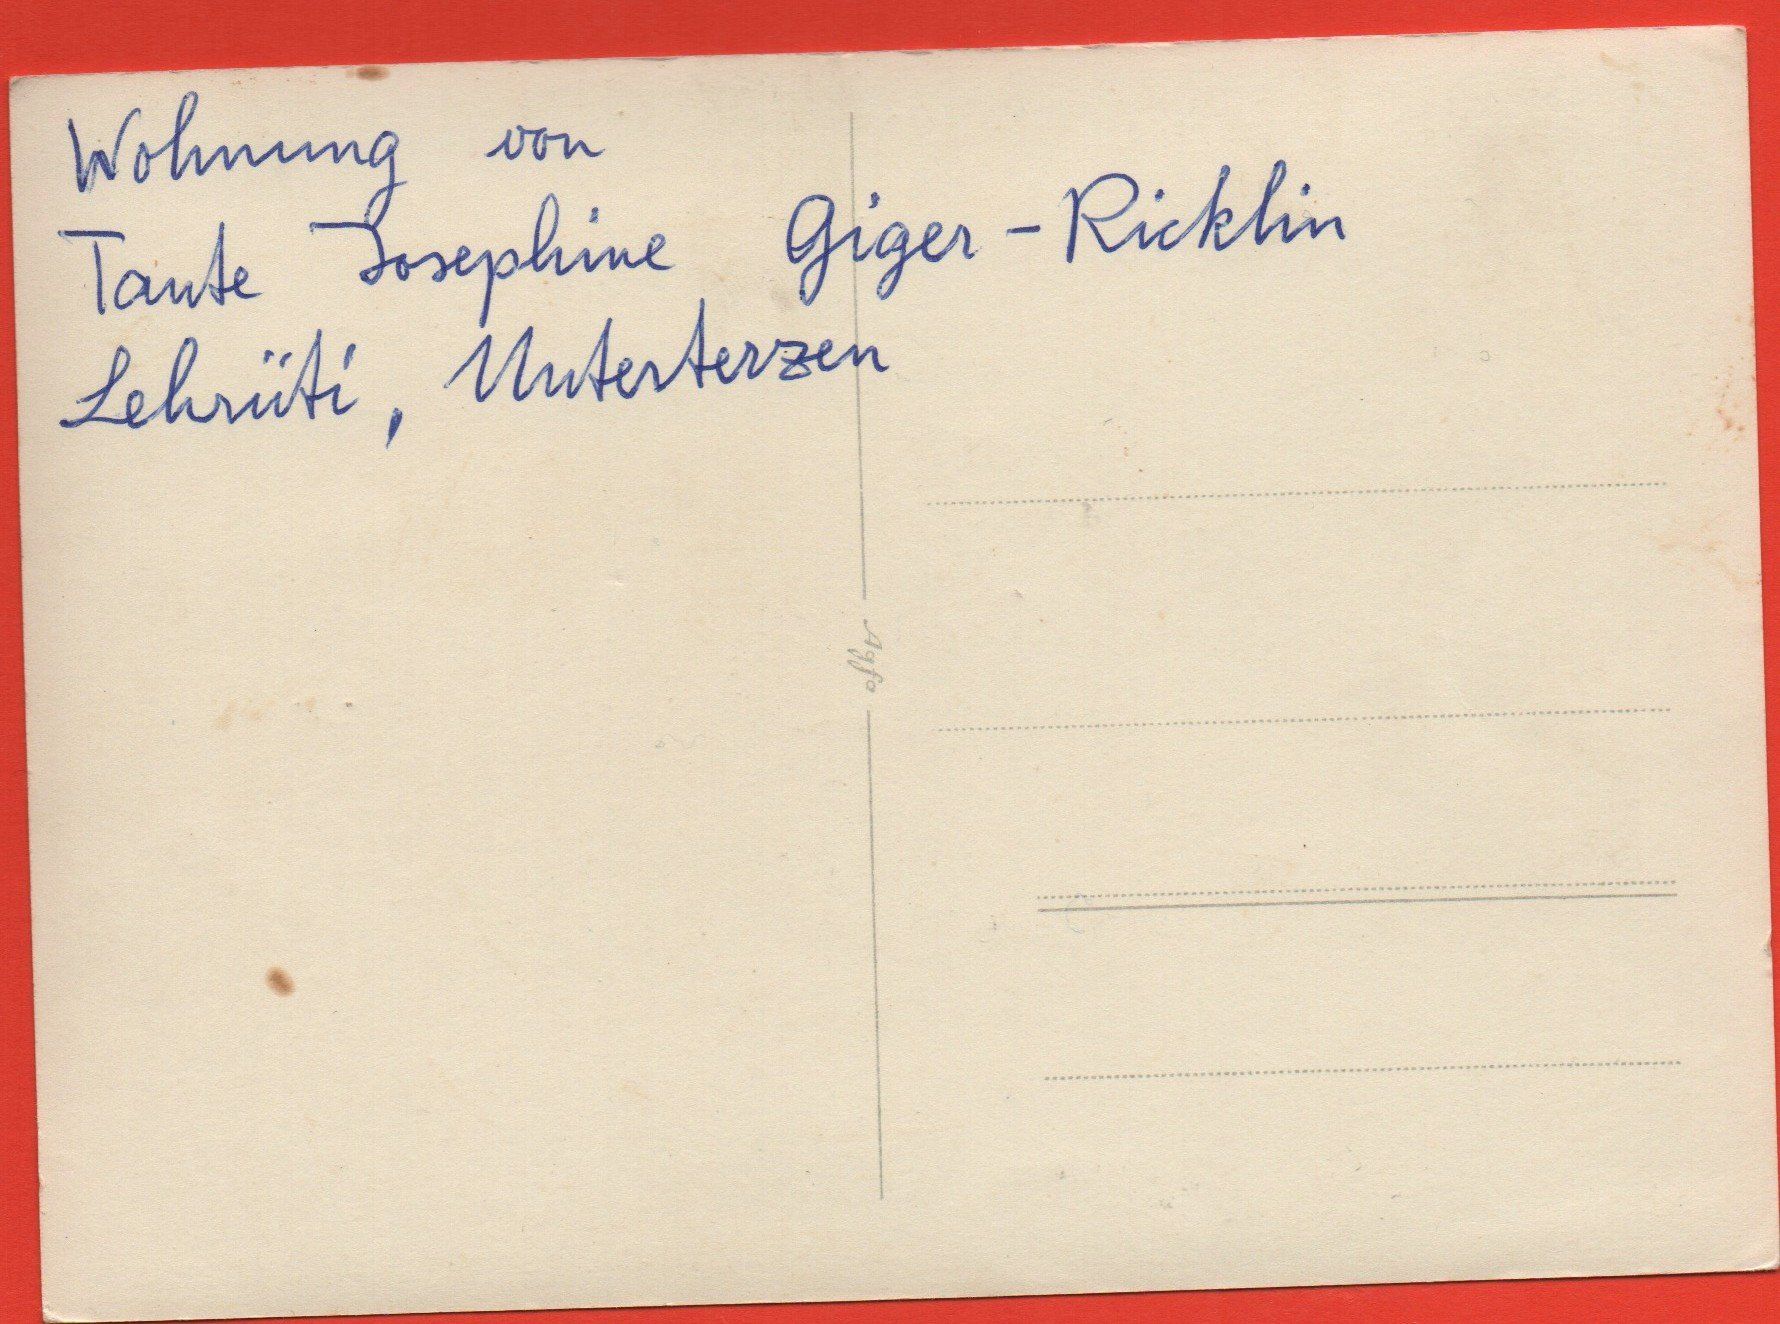 Wohnung von
Tante Josephine Giger-Ricklin
Lehrüti, Unterterzen
Agfa